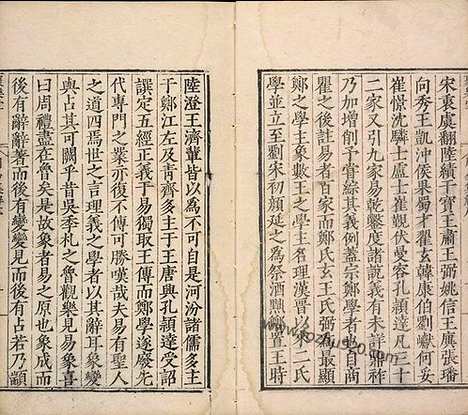 宋衷虞翻陸績干寶王肅王弼姚信王廙張璠
向秀王凱沖侯果蜀才翟玄韓康伯劉巘何妥
崔憬沈驎士盧士崔覲伏曼容孔頴達凡三十
二家又引九家易乾鑿度諸說義有未詳
乃加增削予嘗綜其義例蓋宗鄭學者也自商
瞿之後註易者百家而鄭氏玄王氏弼為最顯
鄭之學主象數王之學主名理漢晉以來二氏
學並立至劉宋初顏延之為祭酒黜鄭置王時
陸澄王濟輩皆以為不可自是河汾諸儒多主
于鄭江左及青齊多主于王唐興孔頴達受詔
譔定五經正義于易獨取王傳而鄭學遂廢先
代專門之業亦復不傳可勝嘆哉夫易有聖人
之道四焉世之言理義之學者以其辭耳象變
與占其可闕乎昔吳季札之魯觀樂見易象喜
曰周禮盡在魯矣是故象者易之原也象成而
後有辭辭著而後有變變見而後有占若乃顓